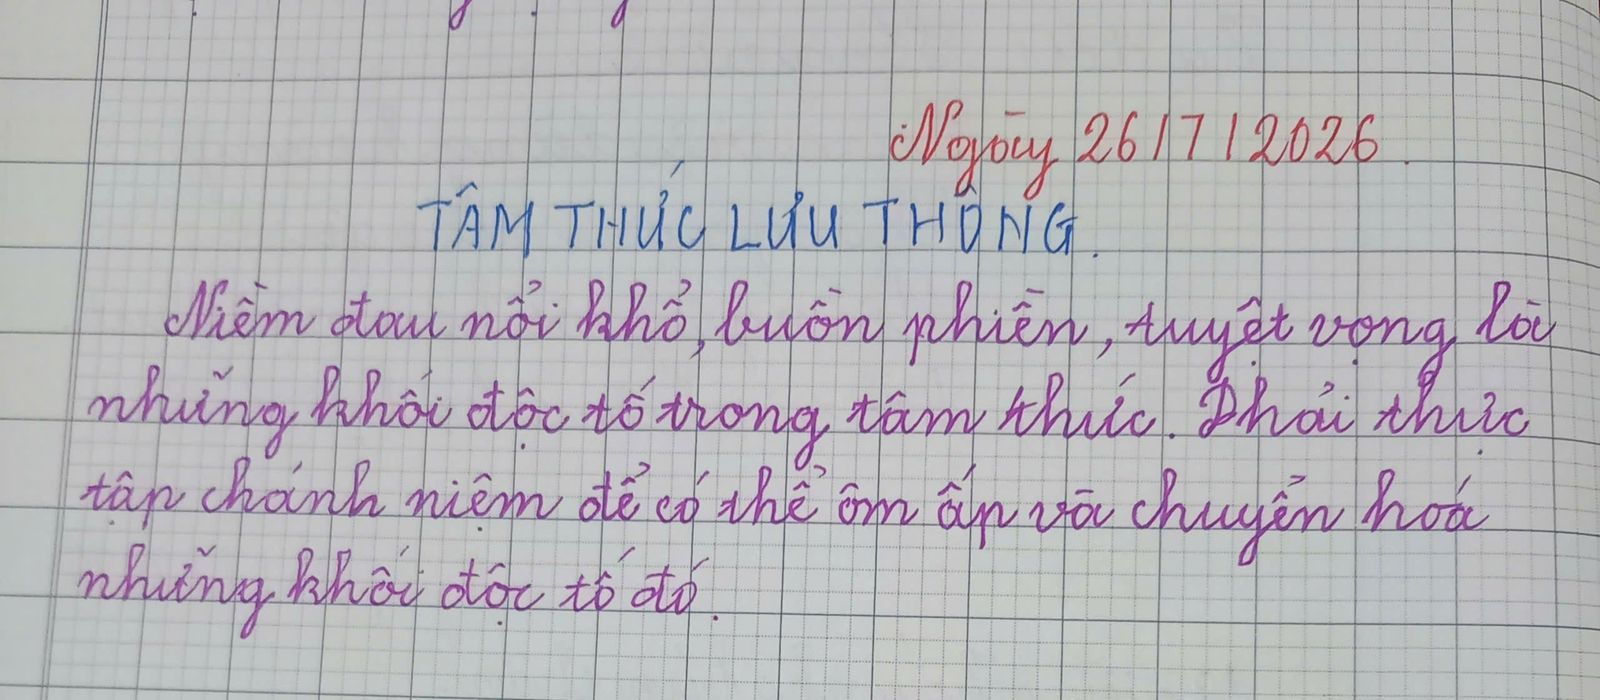 Ngày 26/7/2026.
TÂM THỨC LƯU THÔNG.
Niềm đau nổi khổ, buồn phiền, tuyệt vọng là
những khối độc tố trong tâm thức. Phải thực
tập chánh niệm để có thể ôm ấp và chuyển hoá
những khối độc tố đó.